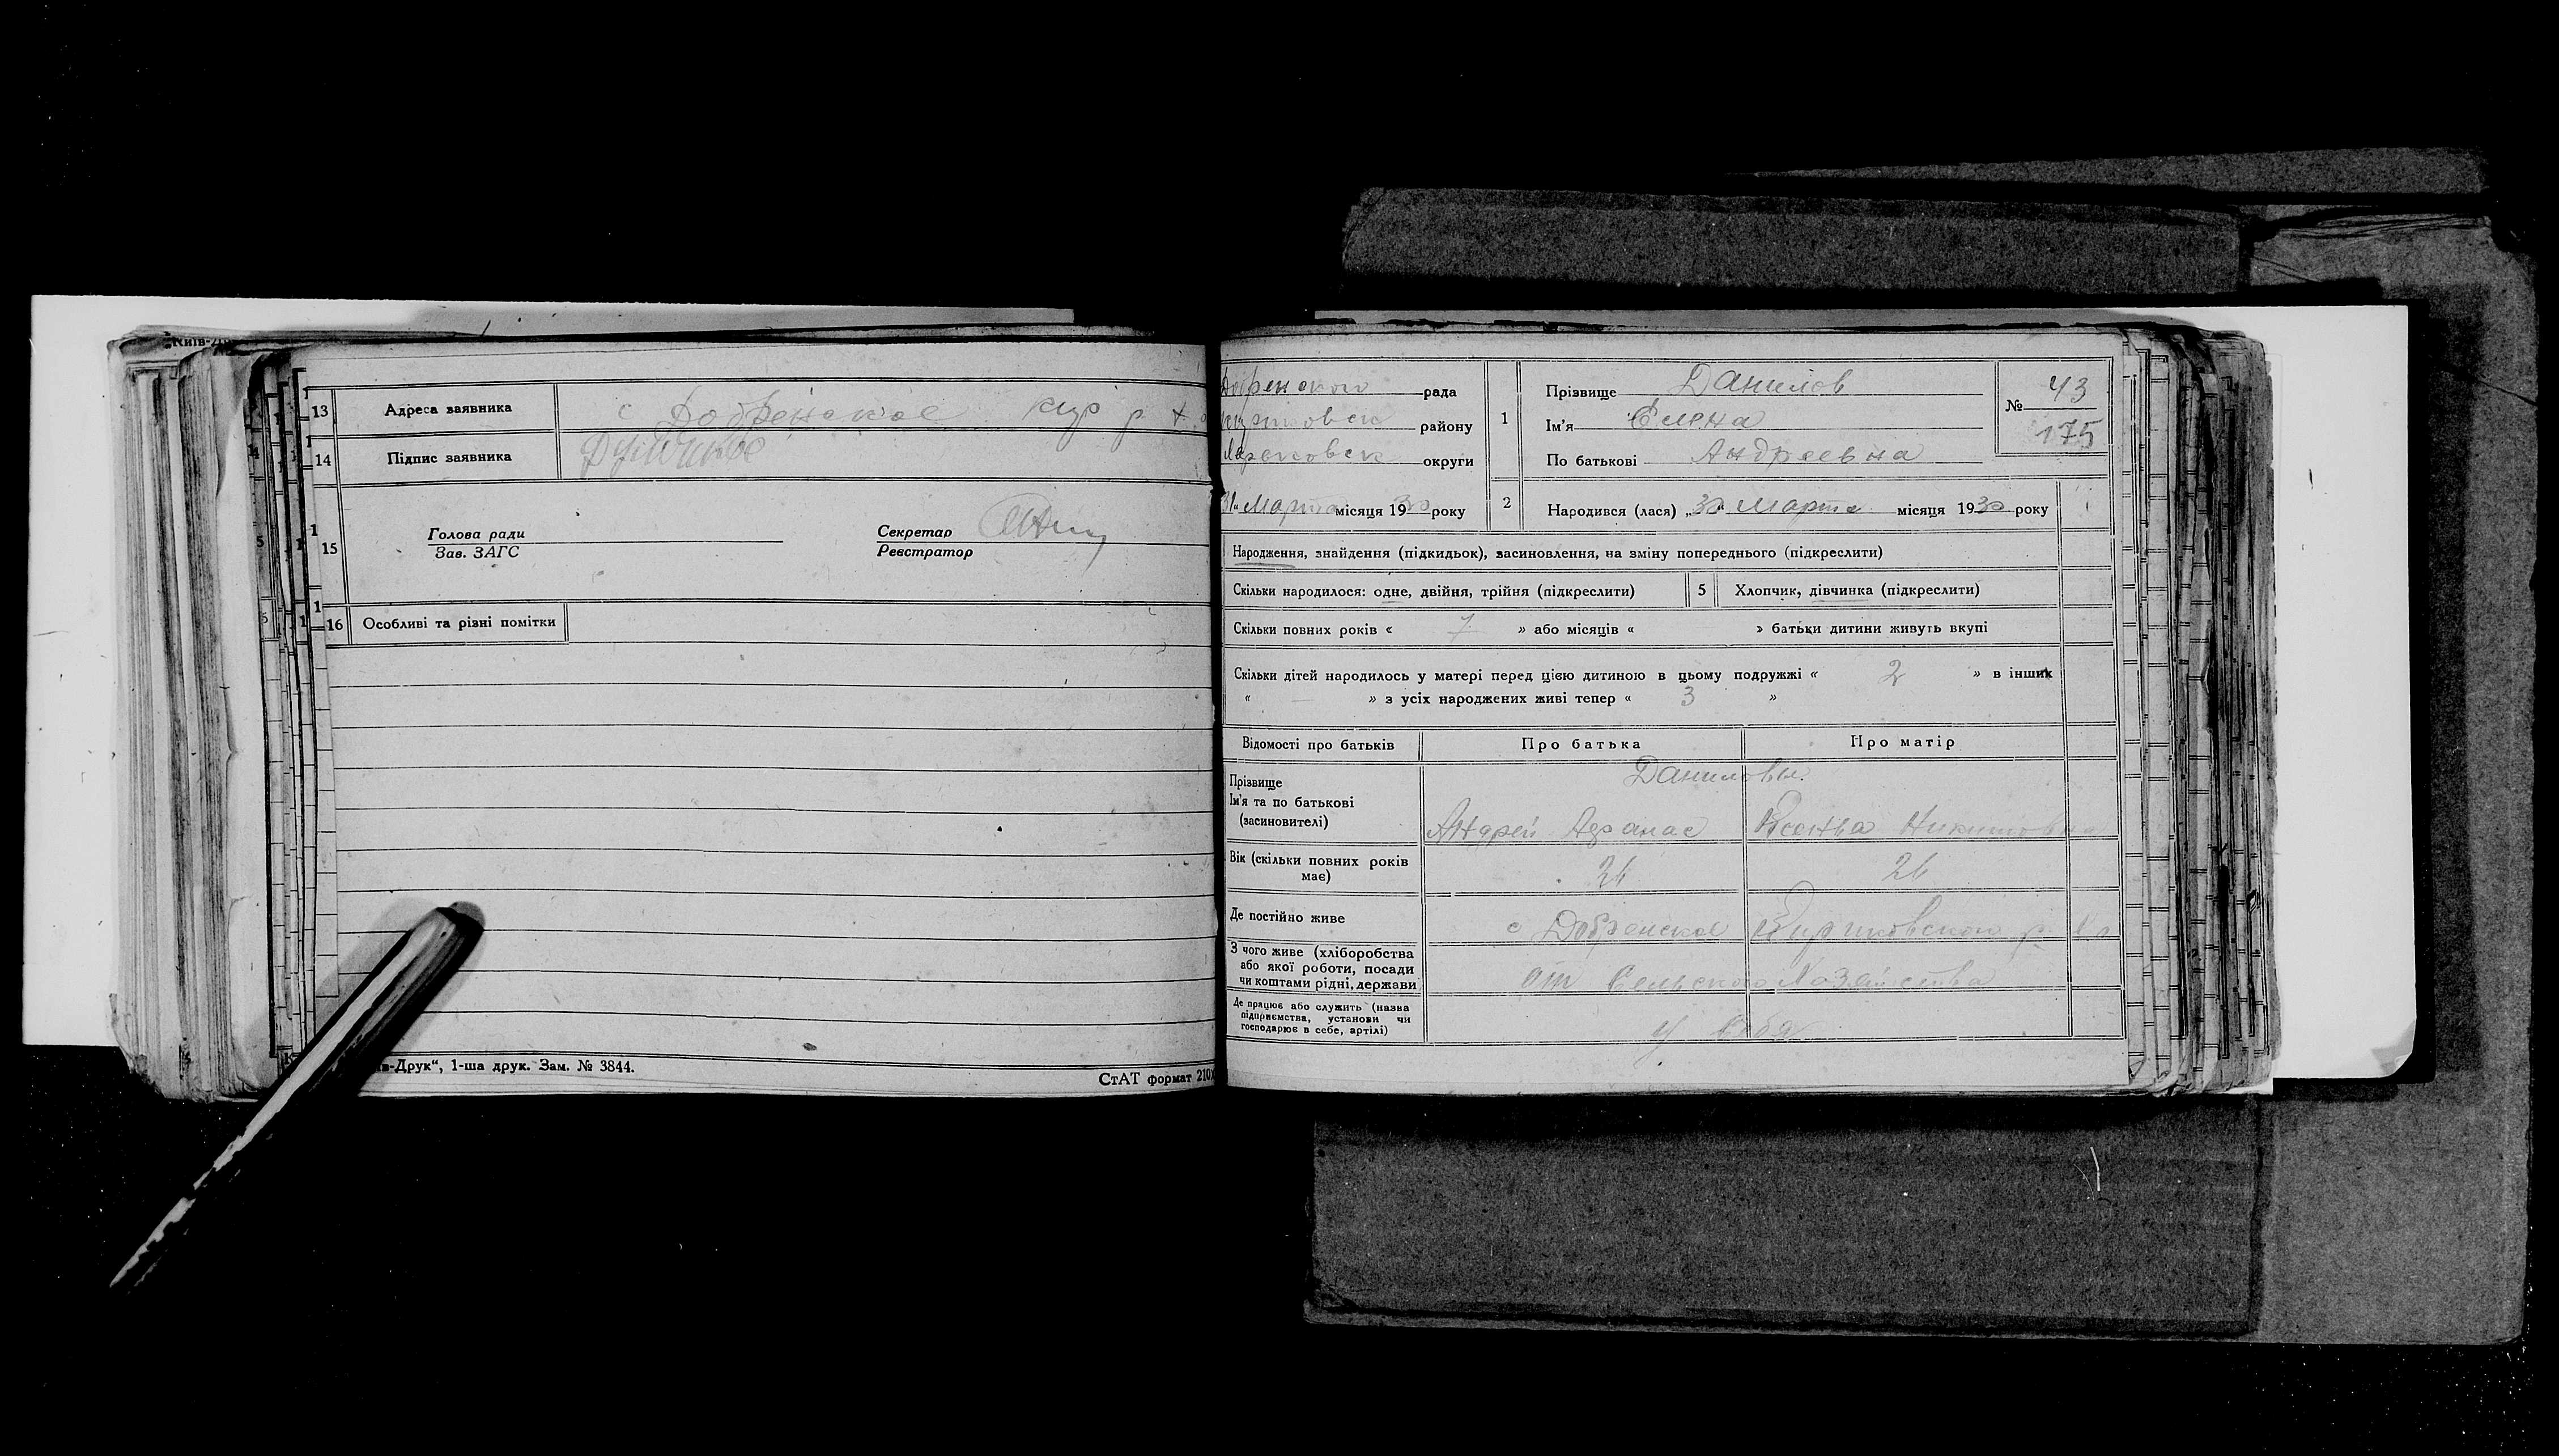 Київ-Д
13 Адреса заявника с Добренское кур р Х
14 Підпис заявника
15 Голова ради
Зав. ЗАГС
Секретар
Реєстратор
16 Особливі та різні помітки
в-Друк“, 1-ша друк. Зам. № 3844.
СтАТ формат 210х
Добренской рада
району
округи
31 Марта місяця 1930 року
1 Прізвище Данилов
Ім'я Елена
По батькові Андреевна
№ 43
175
2 Народився (лася) „30 Марта місяця 1930 року
Народження, знайдення (підкидьок), засиновлення, на зміну попереднього (підкреслити)
Скільки народилося: одне, двійня, трійня (підкреслити)
5 Хлопчик, дівчинка (підкреслити)
Скільки повних років « 7 » або місяців « » батьки дитини живуть вкупі
Скільки дітей народилось у матері перед цією дитиною в цьому подружжі « 2 » в інших
« — » з усіх народжених живі тепер « 3 »
Відомості про батьків Про батька Про матір
Прізвище Даниловы.
Ім'я та по батькові
(засновителі) Андрей Афанас Ксенья Никитовна
Вік (скільки повних років
має) 26 26
Де постійно живе с Добренское
З чого живе (хліборобства
або якої роботи, посади
чи коштами рідні, держави от Сельского Хозяйства
Де працює або служить (назва
підприємства, установи чи
господарює в себе, артілі) у себя